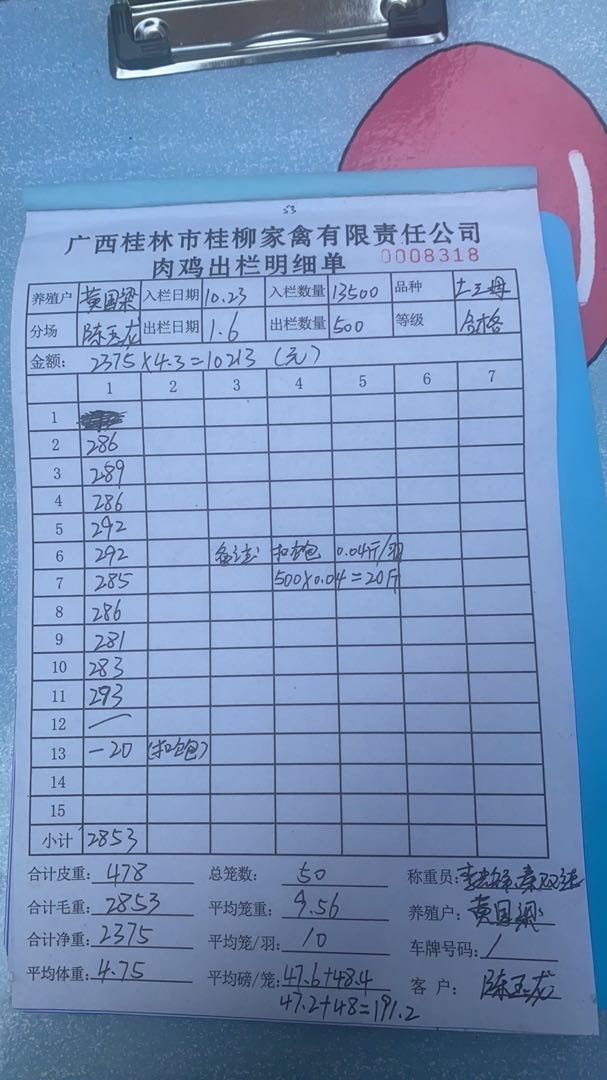 53
广西桂林市桂柳家禽有限责任公司
肉鸡出栏明细单 0008318
养殖户 黄国梁 入栏日期 10.23 入栏数量 13500 品种 土三母
分场 陈玉龙 出栏日期 1.6 出栏数量 500 等级 合格
金额: 2375×4.3=10213 (元)
1 2 3 4 5 6 7
1
2 286
3 289
4 286
5 292
6 292 备注: 扣包 0.04斤/羽
7 285 500×0.04=20斤
8 286
9 281
10 283
11 293
12 —
13 -20 (扣包)
14
15
小计 2853
合计皮重: 478 总笼数: 50 称重员:
合计毛重: 2853 平均笼重: 9.56 养殖户: 黄国梁
合计净重: 2375 平均笼/羽: 10 车牌号码: /
平均体重: 4.75 平均磅/笼: 47.6+48.4 客户: 陈玉龙
47.2+48=191.2